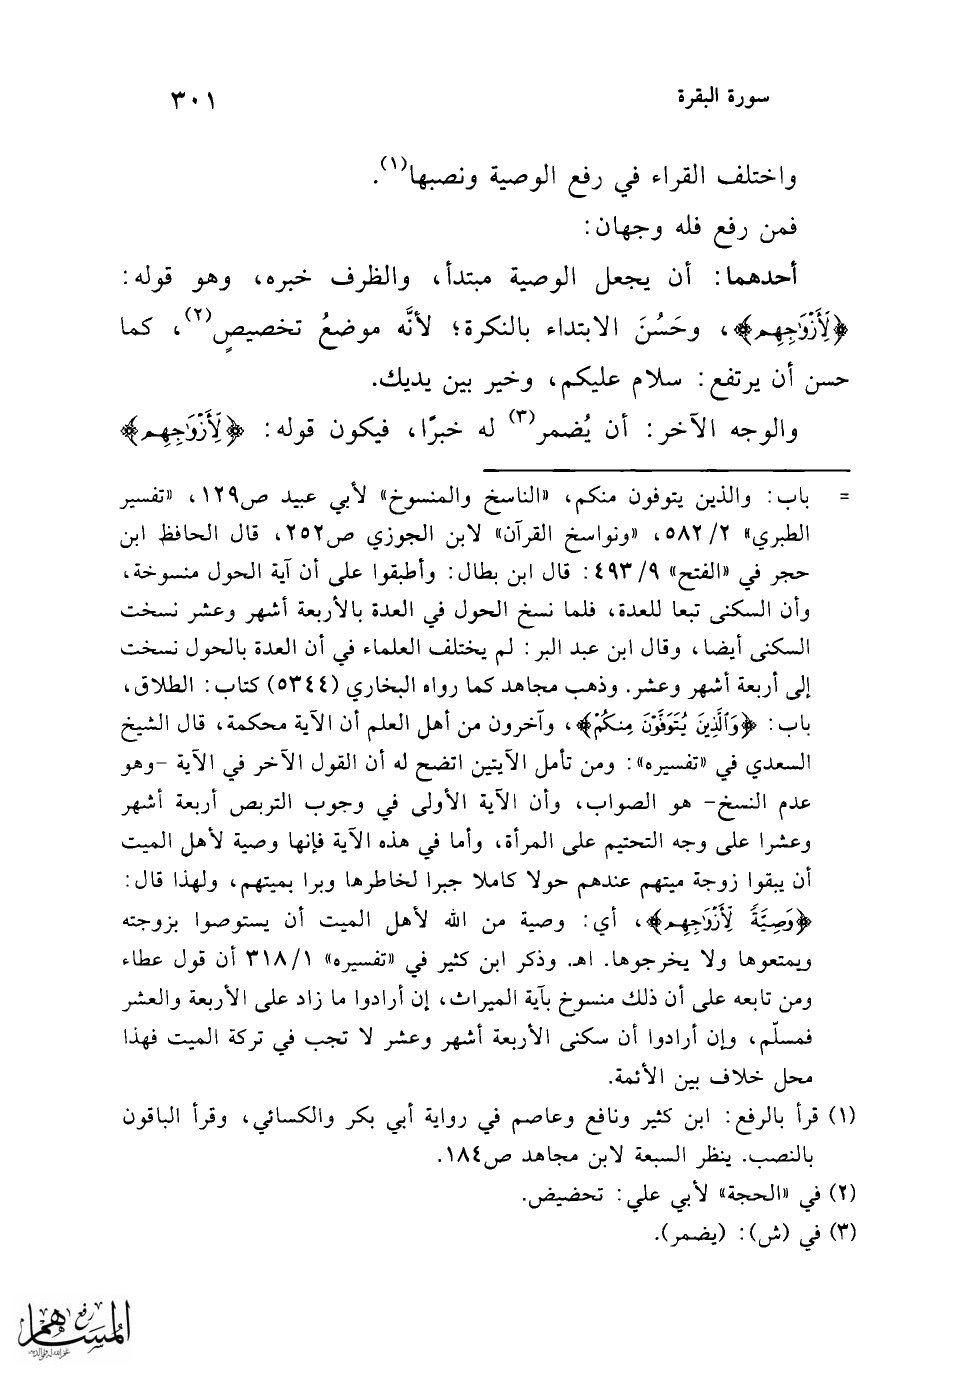 سورة البقرة ٣٠١
واختلف القراء في رفع الوصية ونصبها(١).
فمن رفع فله وجهان:
أحدهما: أن يجعل الوصية مبتدأ، والظرف خبره، وهو قوله:
﴿لِّأَزْوَٰجِهِم﴾، وحَسُنَ الابتداء بالنكرة؛ لأنَّه موضعُ تخصيصٍ(٢)، كما
حسن أن يرتفع: سلام عليكم، وخير بين يديك.
والوجه الآخر: أن يُضمر(٣) له خبرًا، فيكون قوله: ﴿لِّأَزْوَٰجِهِم﴾
= باب: والذين يتوفون منكم، «الناسخ والمنسوخ» لأبي عبيد ص١٢٩، «تفسير
الطبري» ٢/ ٥٨٢، «ونواسخ القرآن» لابن الجوزي ص٢٥٢، قال الحافظ ابن
حجر في «الفتح» ٩/ ٤٩٣: قال ابن بطال: وأطبقوا على أن آية الحول منسوخة،
وأن السكنى تبعا للعدة، فلما نسخ الحول في العدة بالأربعة أشهر وعشر نسخت
السكنى أيضا، وقال ابن عبد البر: لم يختلف العلماء في أن العدة بالحول نسخت
إلى أربعة أشهر وعشر. وذهب مجاهد كما رواه البخاري (٥٣٤٤) كتاب: الطلاق،
باب: ﴿وَٱلَّذِينَ يُتَوَفَّوْنَ مِنكُمْ﴾، وآخرون من أهل العلم أن الآية محكمة، قال الشيخ
السعدي في «تفسيره»: ومن تأمل الآيتين اتضح له أن القول الآخر في الآية -وهو
عدم النسخ- هو الصواب، وأن الآية الأولى في وجوب التربص أربعة أشهر
وعشرا على وجه التحتيم على المرأة، وأما في هذه الآية فإنها وصية لأهل الميت
أن يبقوا زوجة ميتهم عندهم حولا كاملا جبرا لخاطرها وبرا بميتهم، ولهذا قال:
﴿وَصِيَّةً لِّأَزْوَٰجِهِم﴾، أي: وصية من الله لأهل الميت أن يستوصوا بزوجته
ويمتعوها ولا يخرجوها. اهـ. وذكر ابن كثير في «تفسيره» ١/ ٣١٨ أن قول عطاء
ومن تابعه على أن ذلك منسوخ بآية الميراث، إن أرادوا ما زاد على الأربعة والعشر
فمسلّم، وإن أرادوا أن سكنى الأربعة أشهر وعشر لا تجب في تركة الميت فهذا
محل خلاف بين الأئمة.
(١) قرأ بالرفع: ابن كثير ونافع وعاصم في رواية أبي بكر والكسائي، وقرأ الباقون
بالنصب. ينظر السبعة لابن مجاهد ص١٨٤.
(٢) في «الحجة» لأبي علي: تحضيض.
(٣) في (ش): (يضمر).